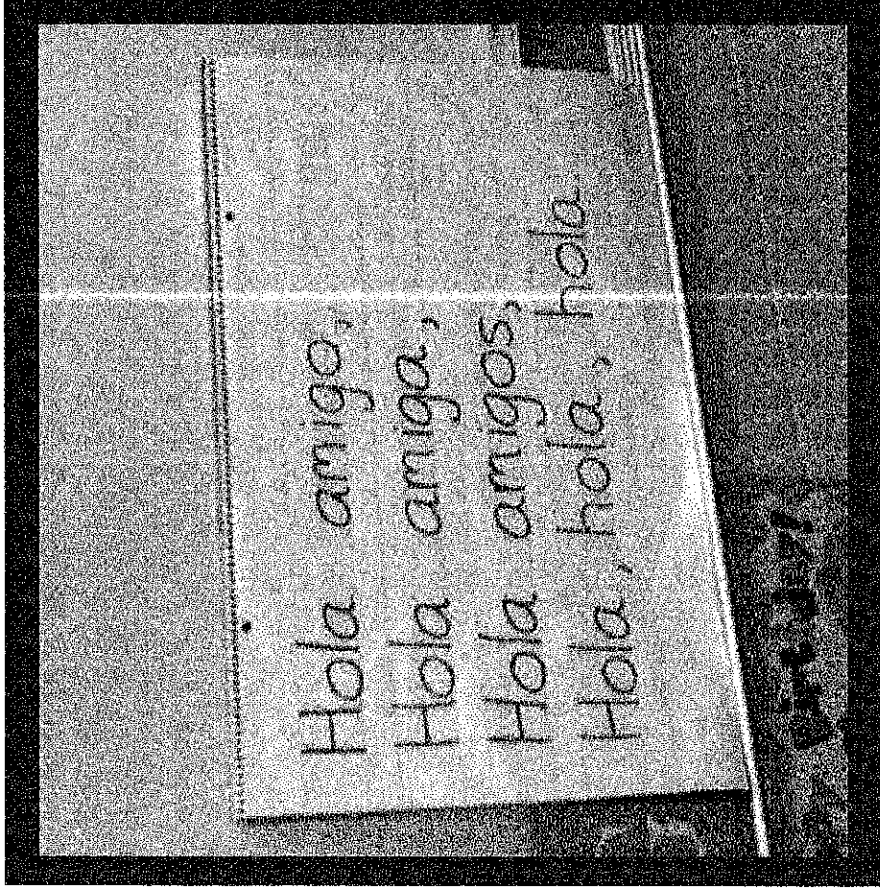 Hola amigo,
Hola amiga,
Hola amigos,
Hola, hola, hola, hola